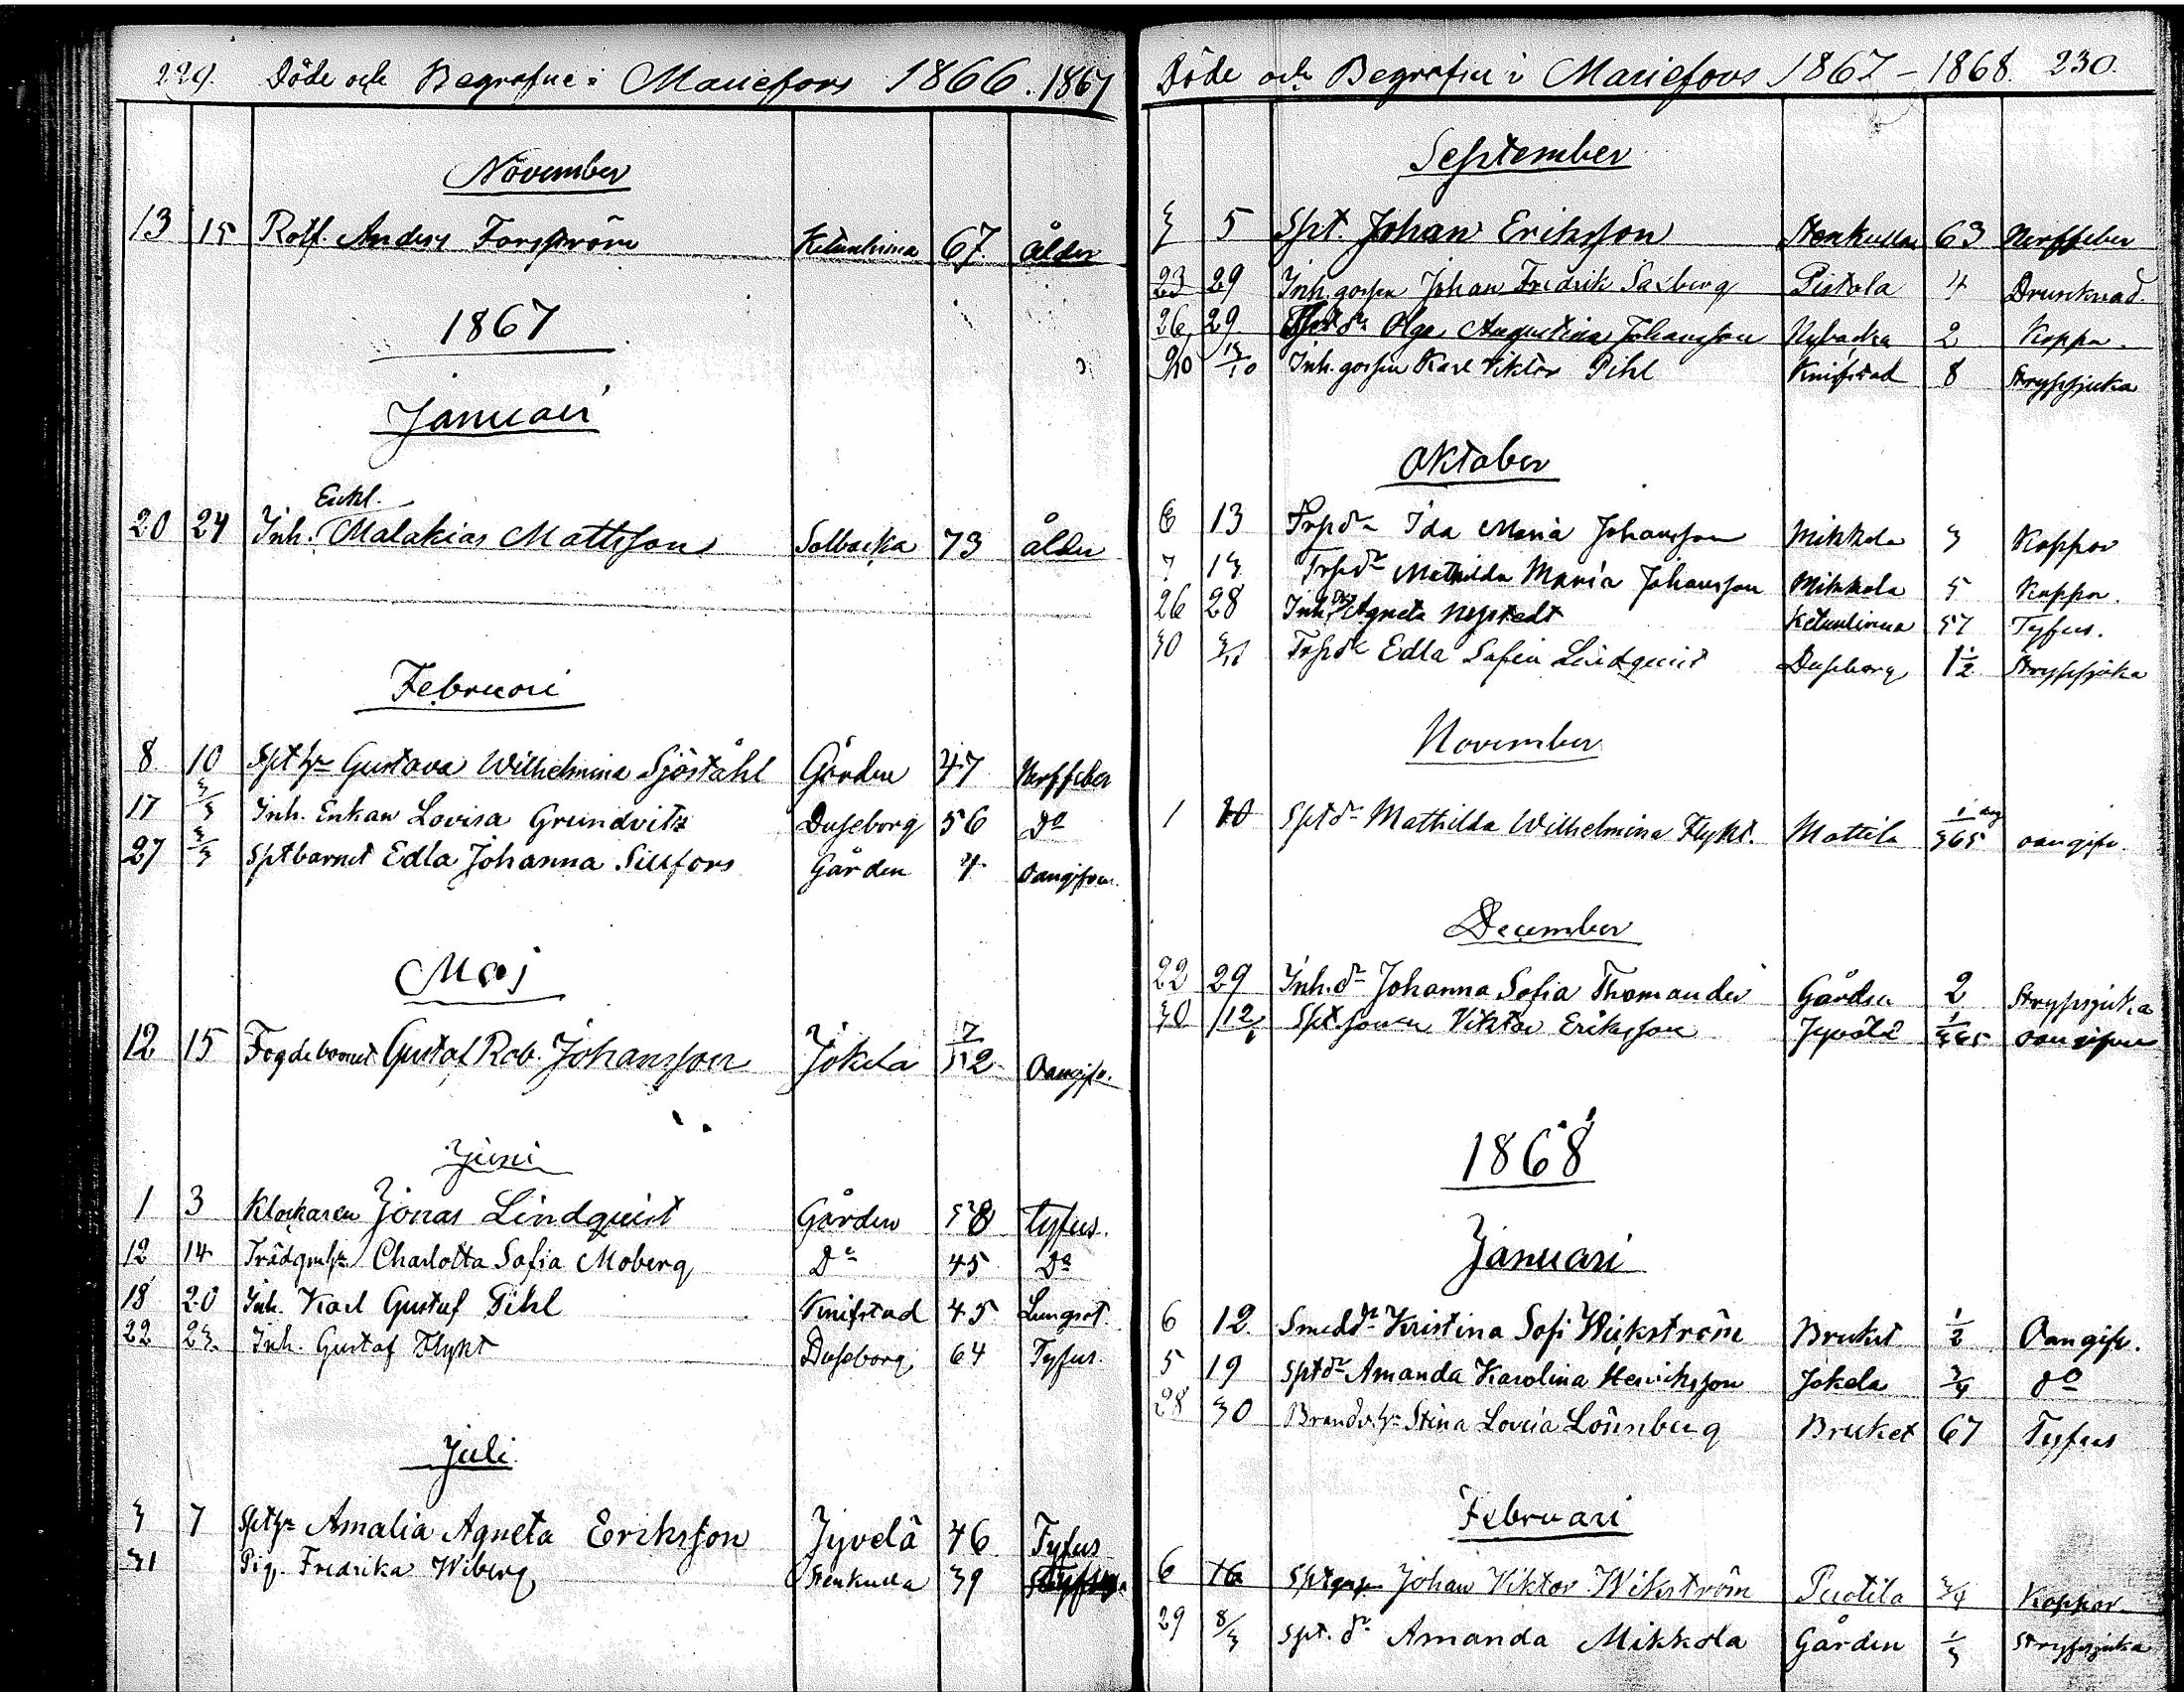 229. Döde och Begrafne i Mariefors 1866. 1867
November
13 15 Rotf. Anders Forsström Ketunlinna 67 ålder
1867
Januari
Enkl.
20 24 Inh. Malakias Mattsson Solbacka 73 ålder
Februari
8 10 Spthu Gustava Wilhelmina Sjöståhl Gården 47 Nerffeber
17 3/3 Inh. Enkan Lovisa Grundvitz Duseborg 56 Do
27 3/3 Sptbarnet Edla Johanna Sillfors Gården 4 Oangifven.
Maj
12 15 Fogdebarnet Gustaf Rob. Johansson Jokela 7/12 Oangifv.
Juni
1 3 Klockaren Jonas Lindquist Gården 58 tyfus.
12 14 Charlotta Sofia Moberg Do 45 Do
18 20 Inh. Karl Gustaf Pihl Knifstad 45 Lungsot.
22 23 Inh. Gustaf Flykt Duseborg 64 Tyfus
Juli
3 7 Spthu Amalia Agneta Eeriksson Jyvelä 46 Tyfus
31 Pig. Fredrika Wiberg Stenkulla 39
Döde och Begrafne i Mariefors 1867 - 1868. 230.
September
3 5 Spt. Johan Eriksson Stenkulla 63 Nerffeber
23 29 Inh. gossen Johan Fredrik Saxberg Pistola 4 Drunknad.
26 29 dr Olga Augustina Johansson Nybacka 2 Koppor.
30 13/10 Inh. gossen Karl Viktor Pihl Knifstad 8 Strypsjuka
Oktober
6 13 Trpdr Ida Maria Johansson Mikkola 3 Koppor
7 13 Trpdr Mathilda Maria Johansson Mikkola 5 Koppor.
26 28 Inh. Agneta Nystedt Ketunlinna 57 Tyfus.
30 3/11 Trpdr Edla Sofia Lindquist Duseborg 1 1/2 Strypsjuka
November
1 10 Sptdr Mathilda Wilhelmina Flykt. Mattila 1/365 oangifv.
December
22 29 Inh. dr Johanna Sofia Thomander Gården 2 Strypsjuka
30 12/1 Spt. sonen Viktor Eriksson Jyvälä 1/365 oangifven
1868
Januari
6 12 Smeddr Kristina Sofi Wickström Bruket 1/2 Oangifv.
5 19 Sptdr Amanda Karolina Henriksson Jokela 3/4 do
28 30 Brandvhu Stina Lovisa Lönnberg Bruket 67 Tyfus
Februari
6 16 Johan Viktor Wikström Puotila 3/4 Koppor
29 8/3 Spt. dr Amanda Mikkola Gården 1/3 Strypsjuka